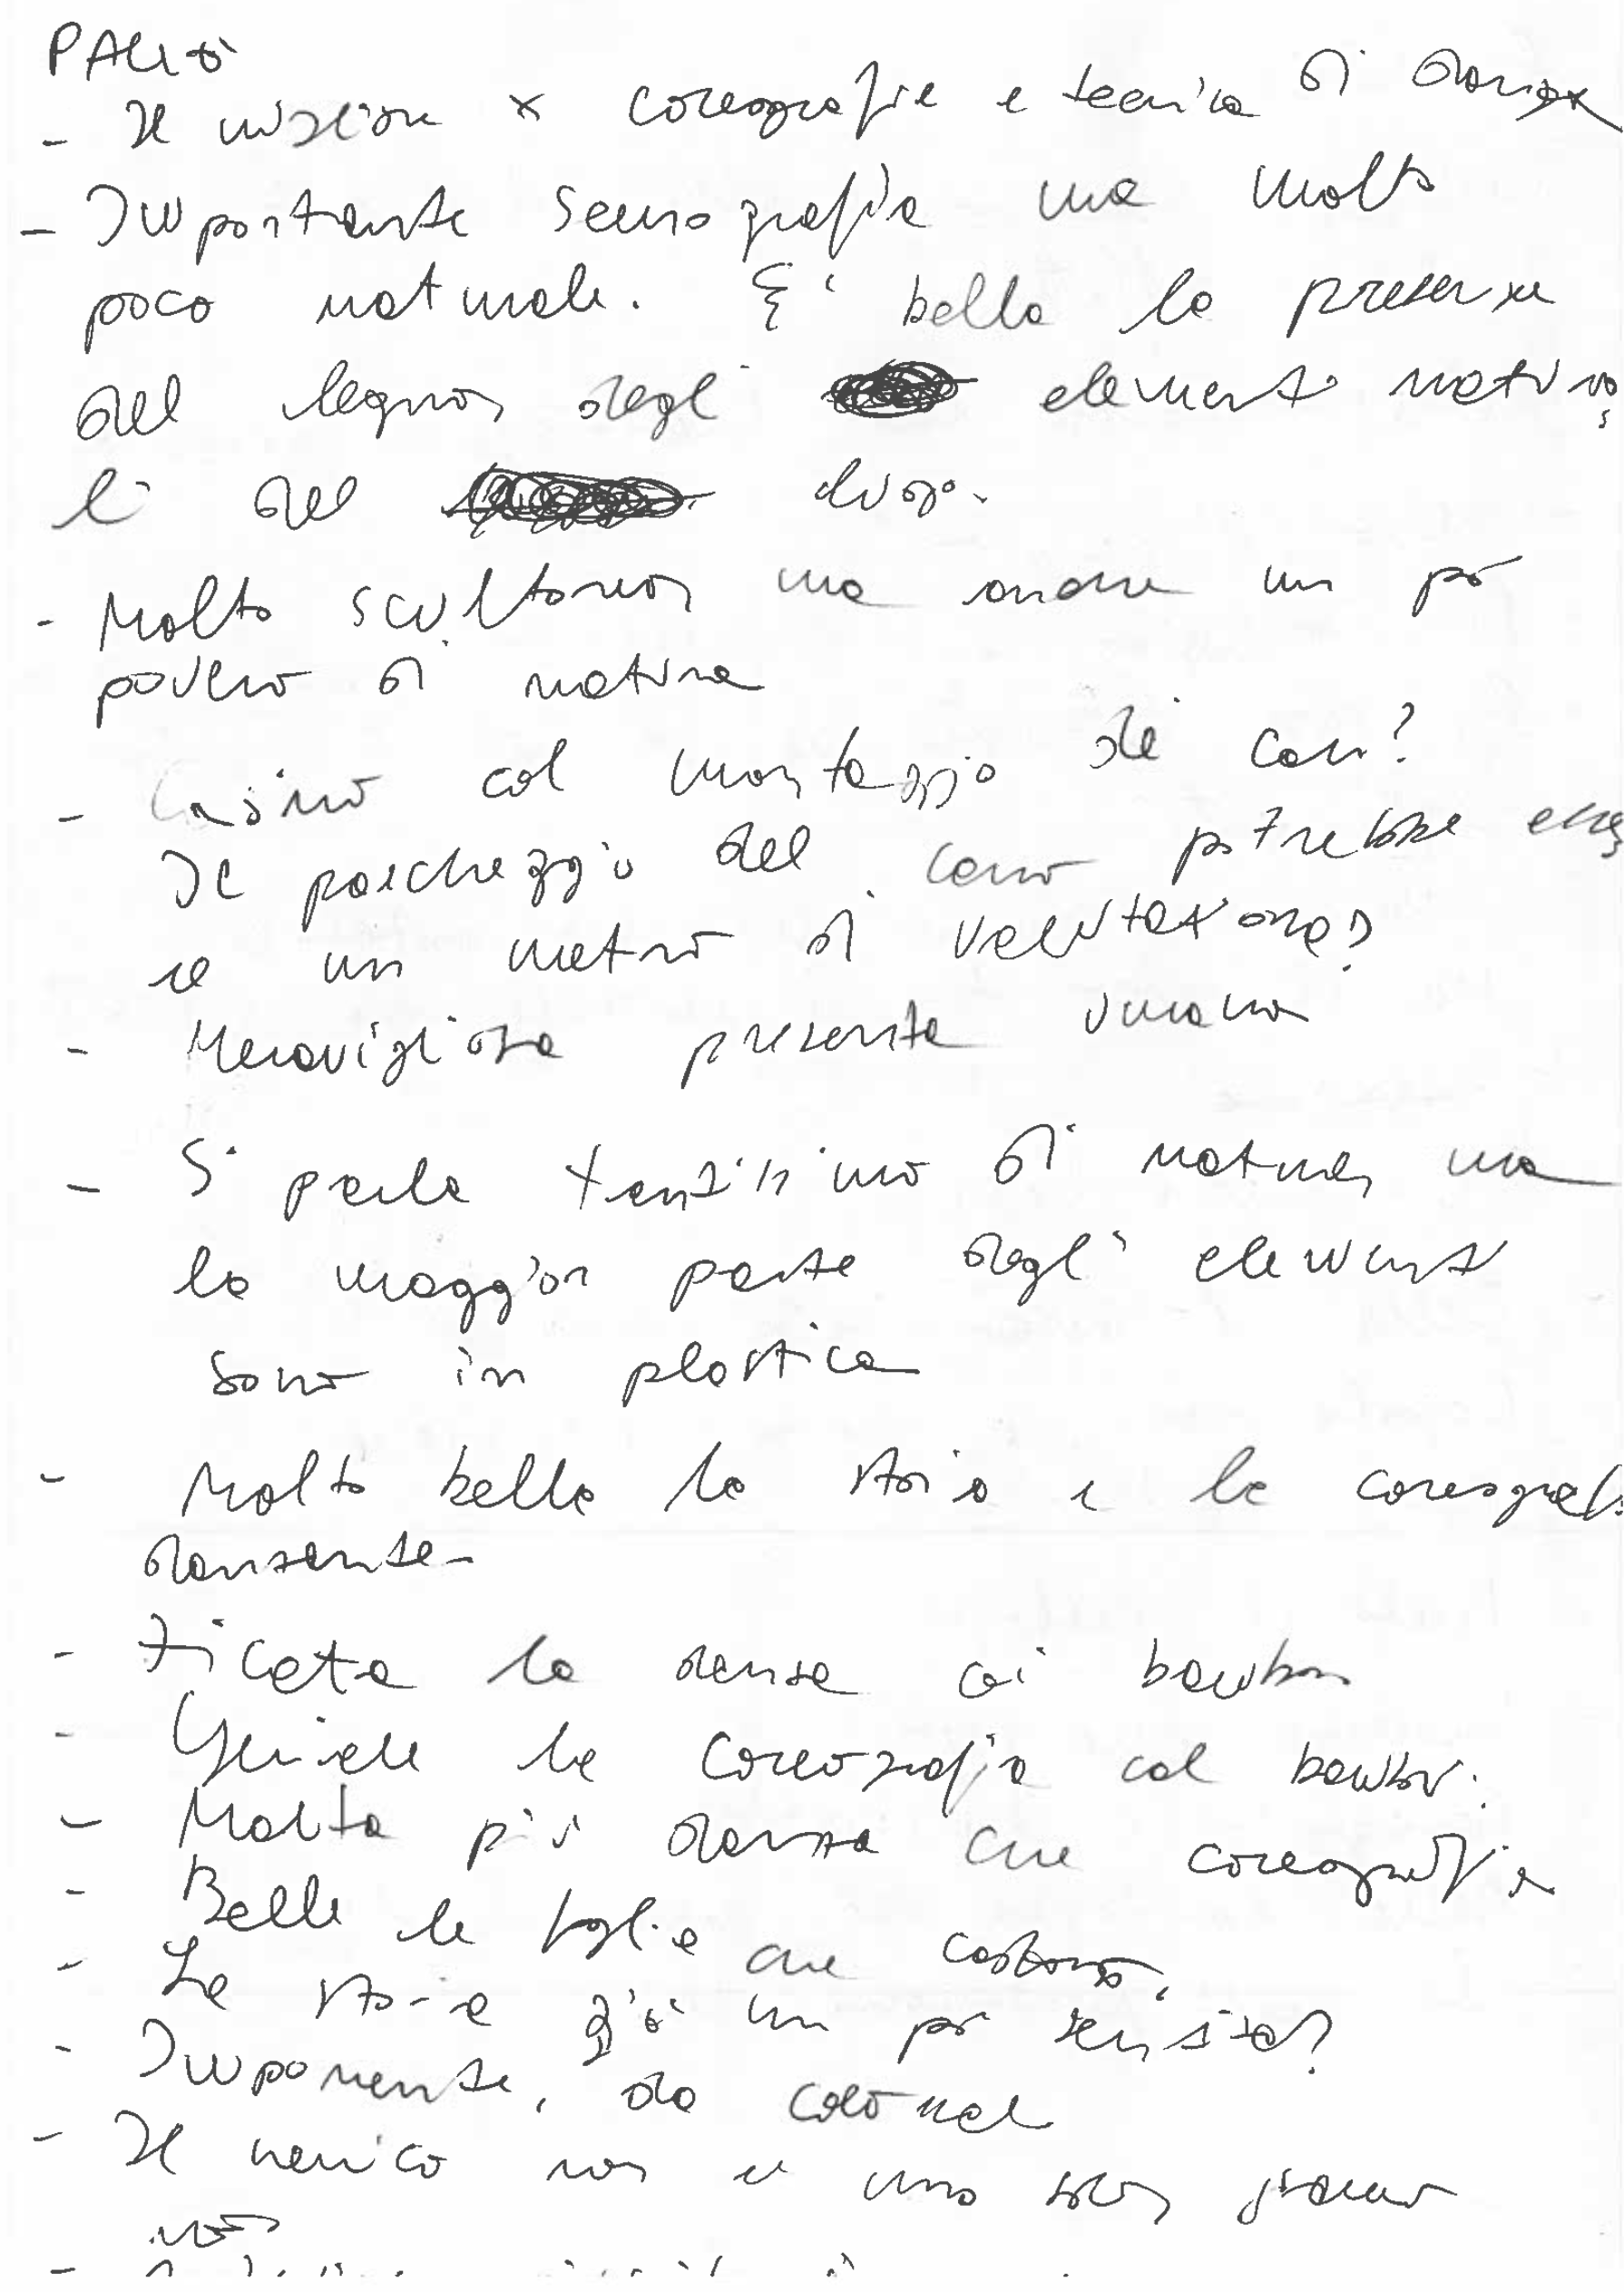 - Il migliore x coreografie e tecnica di danza
- Importante scenografia ma molto
poco naturale. E' bella la presenza
del legno, degli elementi natura
li del luogo.
- Molto scultoreo, ma anche un pò
povero di natura
- Casino col montaggio dei carri?
Il parcheggio del carro potrebbe esse
re un metro di valutazione?
- Meravigliosa presenza umana
- Si parla tantissimo di natura, ma
la maggior parte degli elementi
sono in plastica
- Molto bella la storia e le coreografie
danzante-
- Ficata la danza coi bamboo
- Geniale la coreografia col bambù.
- Molta più danza che coreografia
- Belle le foglie che cascano.
- La storia già un pò sentita?
- Imponente, da
- Il nemico non è uno solo, siamo
noi